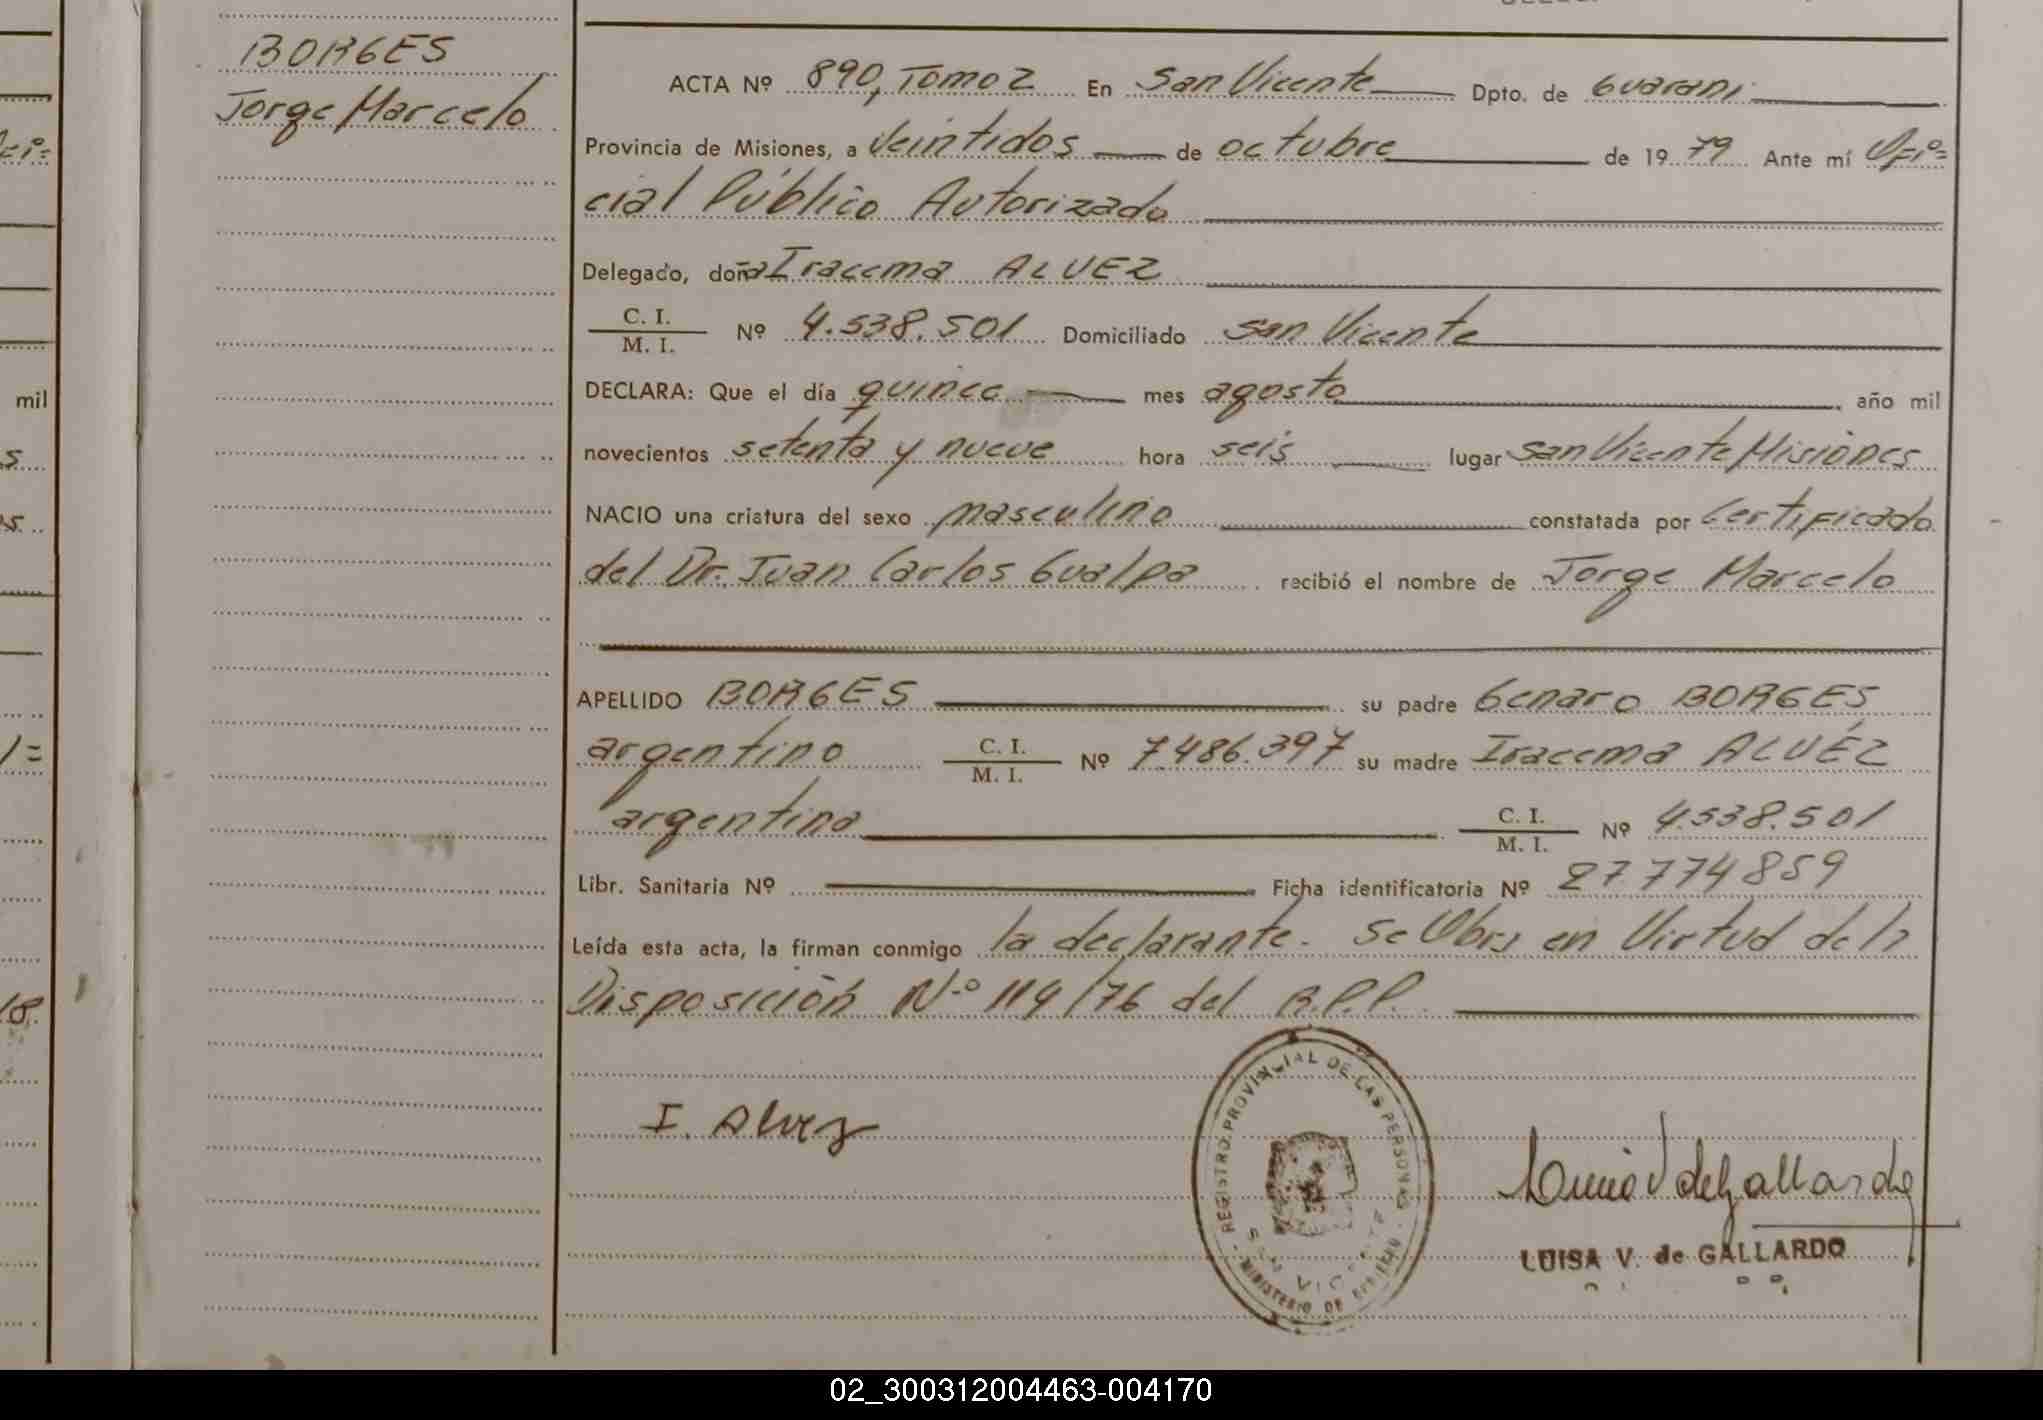 BORGES
Jorge Marcelo
ACTA Nº 890, Tomo 2 En San Vicente Dpto. de Guarani
Provincia de Misiones, a Veintidos de octubre de 1979 Ante mí Ofi=
cial Público Autorizado
Delegado, doña Iracema ALVEZ
C. I.
M. I.
Nº 4.538.501 Domiciliado San Vicente
DECLARA: Que el día quince mes agosto año mil
novecientos setenta y nueve hora seis lugar San Vicente Misiones
NACIO una criatura del sexo masculino constatada por Certificado
del Dr. Juan Carlos Gualpa recibió el nombre de Jorge Marcelo
APELLIDO BORGES su padre Genaro BORGES
argentino C. I. M. I. Nº 7.486.397 su madre Iracema ALVÉZ
argentina C. I. M. I. Nº 4.538.501
Libr. Sanitaria Nº Ficha identificatoria Nº 27774859
Leída esta acta, la firman conmigo la declarante. Se Obra en Virtud de la
Disposición Nº 114/76 del R.P.P.
I. Alvez
REGISTRO PROVINCIAL DE LAS PERSONAS
SAN VICENTE
MINISTERIO DE GOBIERNO
Luisa V de Gallardo
LUISA V. de GALLARDO
mil
18.
02_300312004463-004170